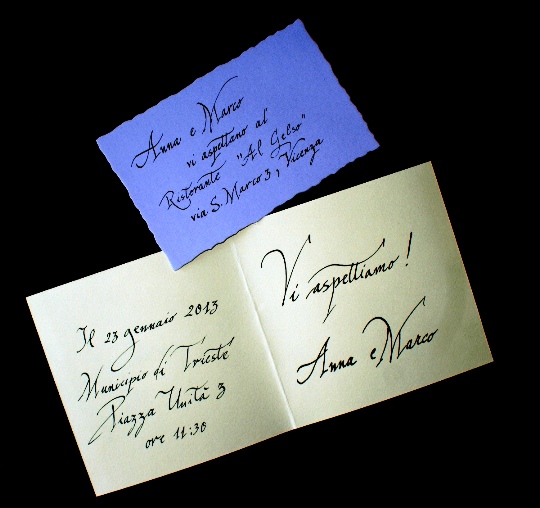 Anna e Marco
vi aspettano al
Ristorante "Al Gelso"
via S. Marco 3, Vicenza
Il 23 gennaio 2013
Municipio di Trieste
Piazza Unità 3
ore 11:30
Vi aspettiamo!
Anna e Marco